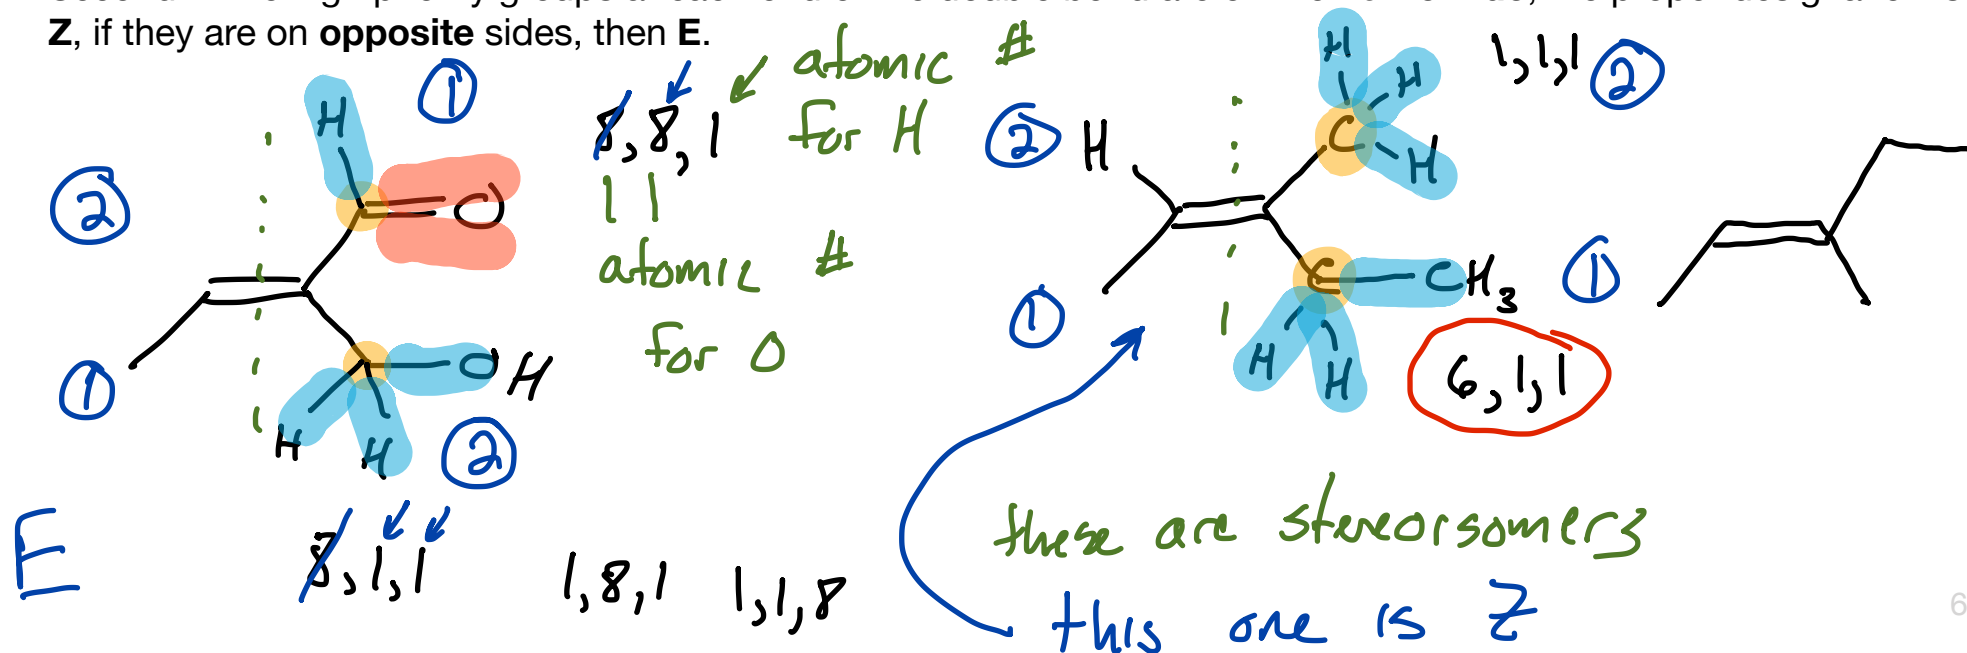 Z, if they are on opposite sides, then E.
①
8, 8, 1
atomic #
for H
②
H
=O
11
atomic #
for O
①
OH
H H
②
E
8, 1, 1
1, 8, 1
1, 1, 8
②
H
H
C H
H
1, 1, 1 ②
①
C CH3
H H
①
6, 1, 1
these are stereoisomers
this one is Z
6